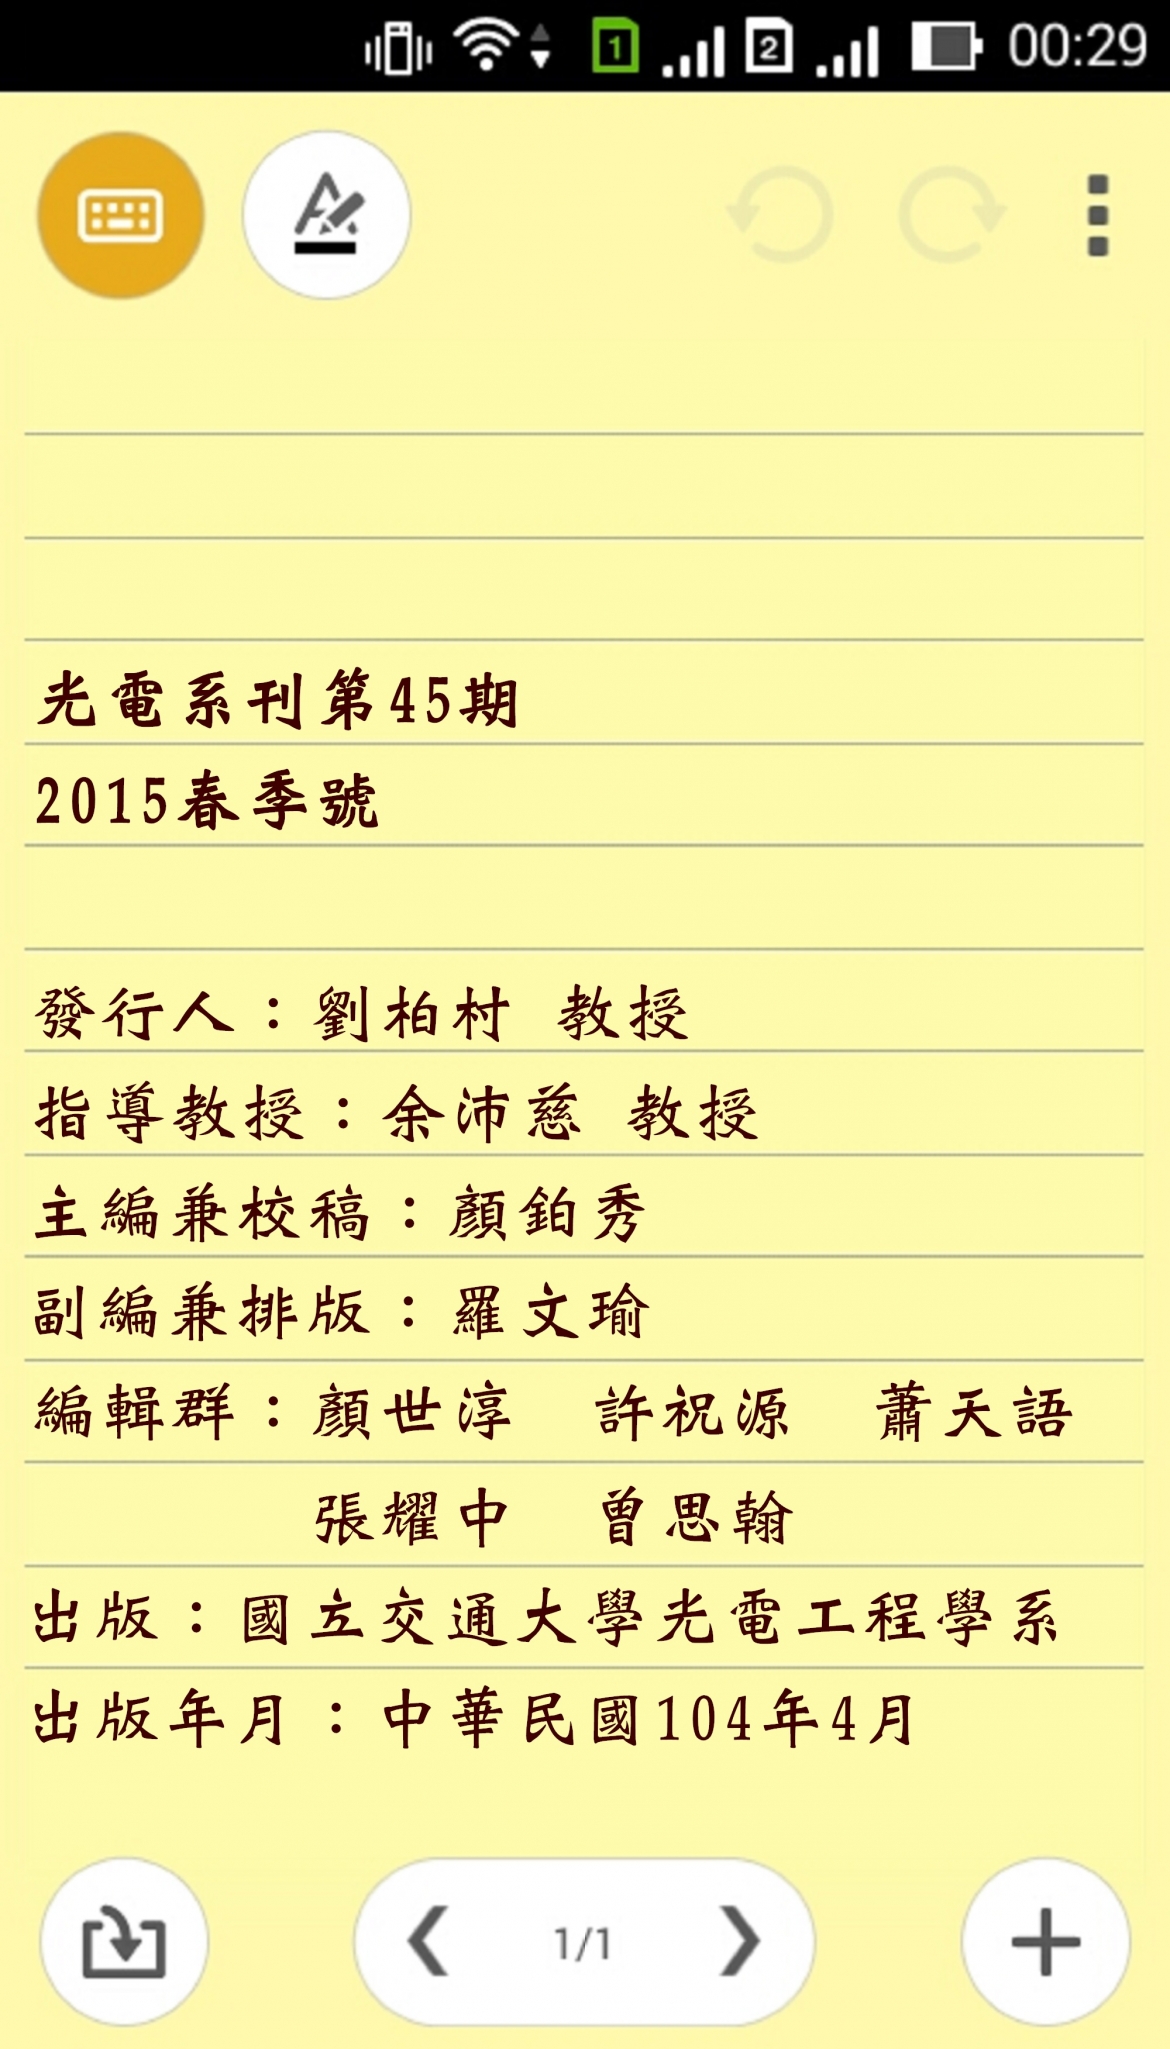 1 2 00:29
光電系刊第45期
2015春季號
發行人：劉柏村 教授
指導教授：余沛慈 教授
主編兼校稿：顏鉑秀
副編兼排版：羅文瑜
編輯群：顏世淳 許祝源 蕭天語
張耀中 曾思翰
出版：國立交通大學光電工程學系
出版年月：中華民國104年4月
1/1